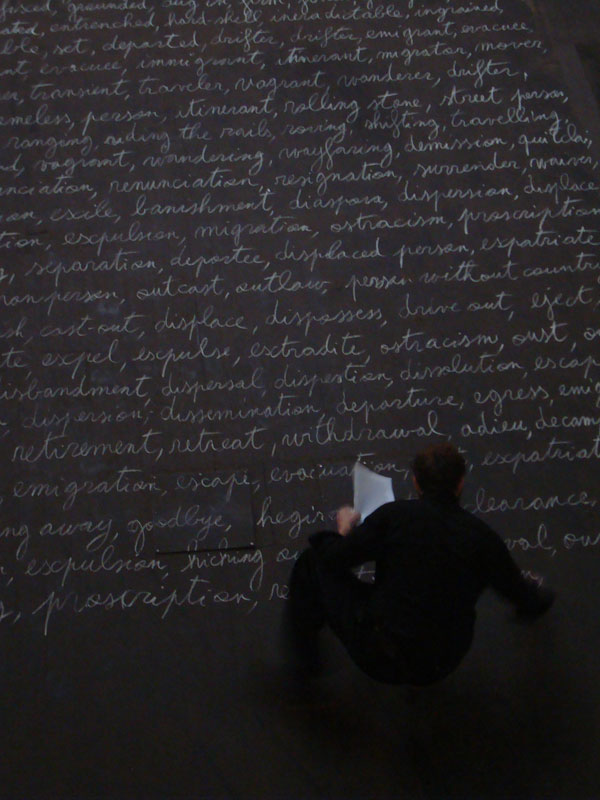 grounded, dug in, firm,
entrenched, hard-shell ineradictable, ingrained
set, departed, drifter, drifter, emigrant, evacuee,
evacuee, immigrant, itinerant, migrator, mover,
transient, traveler, vagrant, wanderer, drifter,
person, itinerant, rolling stone, street person,
ranging, riding the rails, roving, shifting, travelling,
vagrant, wandering, wayfaring, demission,
renunciation, resignation, surrender, waiver,
exile, banishment, diaspora, dispersion, displace
expulsion, migration, ostracism, proscription
separation, deportee, displaced person, expatriate
nonperson, outcast, outlaw, person without country
cast-out, displace, dispossess, drive out, eject,
expel, expulse, extradite, ostracism, oust,
disbandment, dispersal, dispertion, dissolution, escap
dispersion, dissemination, departure, egress, emig
retirement, retreat, withdrawal adieu, decam
emigration, escape, evacuation, expatriat
ng away, goodbye, hegira clearance,
expulsion, hiching
proscription, re